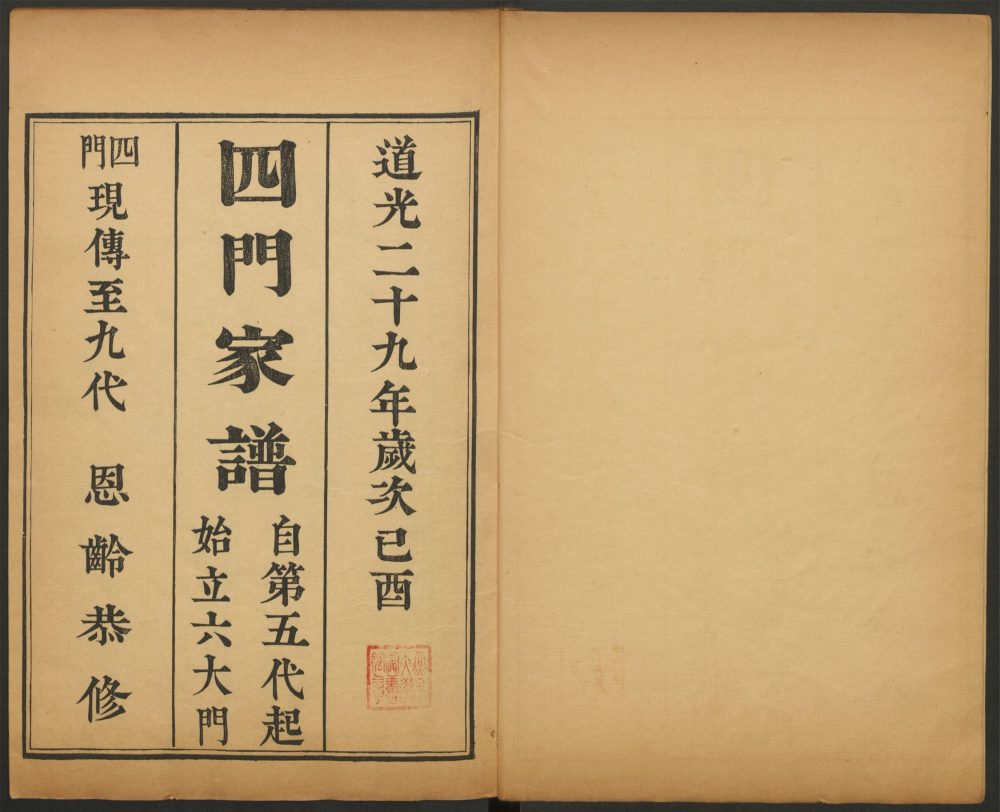 道光二十九年歲次已酉
四門家譜
自第五代起
始立六大門
四門現傳至九代 恩齡恭修